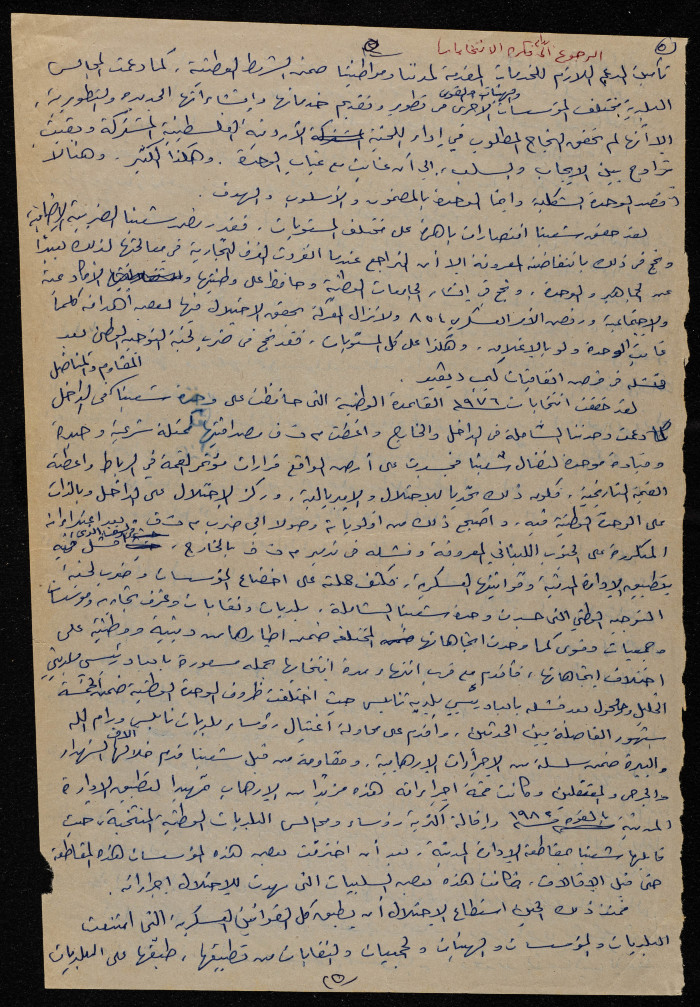 ٥
الرجوع الى فكرة الانتخابات
تأمين الدعم اللازم للخدمات المقدمة لمدننا ومواطنينا ضمن الشروط الوطنية، كما دعت المجالس
البلدية مختلف المؤسسات الأخرى في تطوير وتقديم خدماتها وانشاءاتها الجديدة والتطويرية،
الا أنها لم تحقق النجاح المطلوب في إطار اللجنة الأردنية الفلسطينية المشتركة وبقيت
تتراوح بين الايجاب والسلب، الى أن غابت مع غياب الوحدة. وهكذا الكثير. وهنا لا
أقصد الوحدة الشكلية وانما الوحدة بالمضمون والأسلوب والهدف.
لقد حقق شعبنا انتصارات باهرة على مختلف المستويات، فقد رفض شعبنا الضريبة الاضافية
ونجح في ذلك بانتفاضته المعروفة الا أن التراجع عندما انفردت الغرف التجارية في معالجتها لذلك بعيدا
عن الجماهير والوحدة، ونجح في إنشاء الجامعات الوطنية وحافظ على وطنيتها
والاجتماعية ورفض الأمر العسكري ٨٥٤ ولا تزال المعركة يحقق الاحتلال فيها بعض أهدافه كلما
غابت الوحدة ولو بالاعلان، وهكذا على كل المستويات، فقد نجح في ضرب لجنة التوجيه الوطني بعد
فشله في فرض اتفاقيات كامب ديفيد.
المقاوم والمناضل
لقد حققت انتخابات ١٩٧٦م القاعدة الوطنية التي حافظت على وحدة شعبنا في الداخل
كما دعت وحدتنا الشاملة في الداخل والخارج وأعطت م ت ف مصداقيتها كممثلة شرعية وحيدة
وقيادة موحدة لنضال شعبنا فجسدت على أرض الواقع قرارات مؤتمر القمة في الرباط وأعطته
القيمة التاريخية، فكان ذلك تحديا للاحتلال والامبريالية، وركز الاحتلال على الداخل وبالذات
على الوحدة الوطنية فيه، وأصبح ذلك من أولوياته وصولا الى ضرب م ت ف وبعد اعتداءاته
المتكررة على الجنوب اللبناني المعروفة وفشله في تدمير م ت ف بالخارج،
بتطبيق الادارة المدنية وقوانينها العسكرية، فكثف حملته على اخضاع المؤسسات وضرب لجنة
التوجيه الوطني التي جسدت وحدة شعبنا الشاملة، بلديات ونقابات وغرف تجارية ومؤسسات
وجمعيات وقوى كما وحدت اتجاهاتها المختلفة ضمن اطارها من دينية ووطنية على
اختلاف اتجاهاتها، فأقدم مع قرب انتهاء مدة انتخابها بحملة مسعورة بابعاد رئيسي بلديتي
الخليل وحلحول بعد فشله بابعاد رئيس بلدية نابلس حيث اختلفت ظروف الوحدة الوطنية ضمن الخمسة
شهور الفاصلة بين الحدثين، وأقدم على محاولة اغتيال رؤساء بلديات نابلس ورام الله
والبيرة ضمن سلسلة من الاجراءات الارهابية، ومقاومة من قبل شعبنا قدم خلالها آلاف الشهداء
والجرحى والمعتقلين وكانت قمة اجراءاته هذه مزيدا من الارهاب تمهيدا لتطبيق الادارة
المدنية ١٩٨٢ واقالة أكثرية رؤساء ومجالس البلديات الوطنية المنتخبة، حيث
قابلها شعبنا بمقاطعة الادارة المدنية، بعد أن اخترقت بعض هذه المؤسسات هذه المقاطعة
حتى قبل الاقالات، فكانت هذه بعض السلبيات التي مهدت للاحتلال اجراءاته.
فمنذ ذلك الحين استطاع الاحتلال أن يطبق كل القوانين العسكرية التي امتنعت
البلديات والمؤسسات والهيئات والجمعيات والنقابات من تطبيقها، طبقها على البلديات